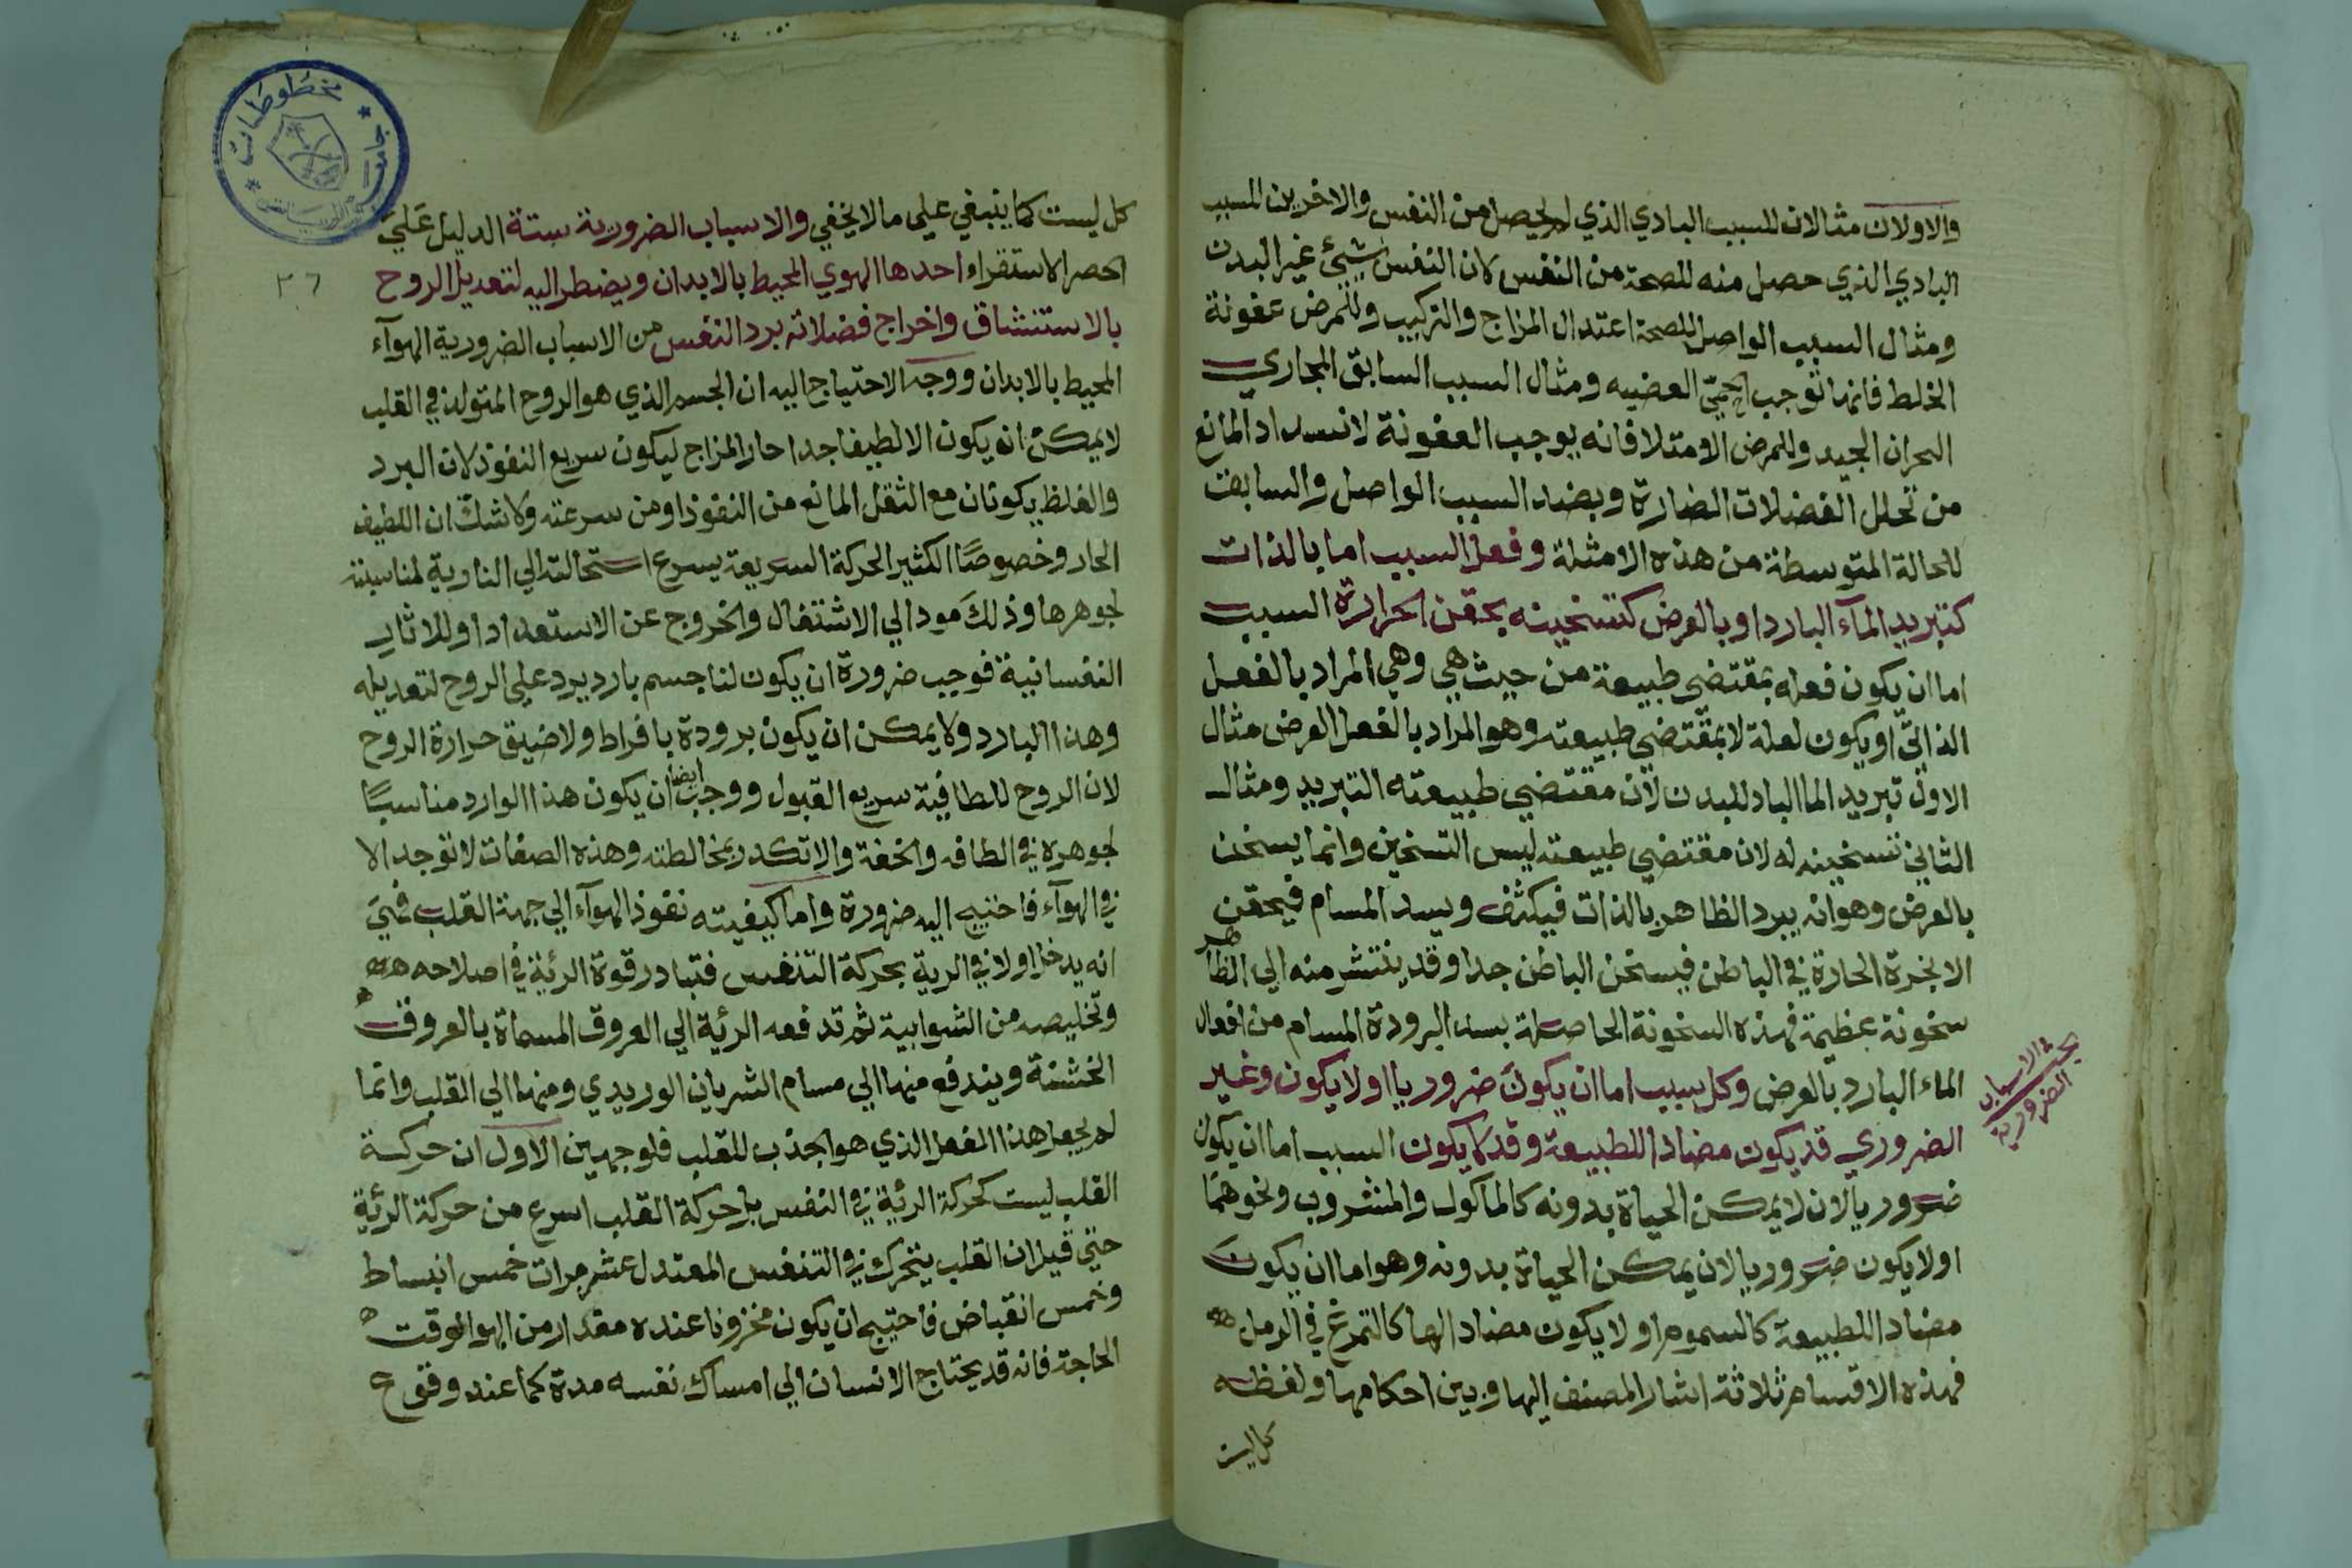 والاولان مثالان للسبب البادي الذي لم يحصل من النفس والاخرين للسبب
البادي الذي حصل منه للصحة من النفس كان النفس شيئ غير البدن
ومثال السبب الواصل للصحة اعتدال المزاج والتركيب وللمرض عفونة
الخلط فانها توجب الحمّي العضيه ومثال السبب السابق المجاري
البحران الجيد وللمرض الامتلا فانه يوجب العفونة لانسداد المانع
من تحلل الفضلات الضارة وبضد السبب الواصل والسابق
للحالة المتوسطة من هذه الامثلة وفعل السبب اما بالذات
كتبريد المآء البارد او بالعرض كتسخينه بحقن الحرارة السبب
اما ان يكون فعله بمقتضي طبيعة من حيث هي وهي المراد بالفعل
الذاتيّ او يكون لعلة لا بمقتضي طبيعته وهو المراد بالفعل العرض مثال
الاول تبريد الما البارد للبدن لان مقتضي طبيعته التبريد ومثال
الثاني تسخينه له لان مقتضي طبيعته ليس التسخين وانما يسخن
بالعرض وهو انه يبرد الظاهر بالذات فيكثف ويسد المسام فيحقن
الابخرة الحارة في الباطن فيسخن الباطن جدا وقد ينتشر منه الي الظاهر
سخونة عظيمة فهذه السخونة الحاصلة بسد البرودة المسام من افعال
الماء البارد بالعرض وكل سبب اما ان يكون ضروريا او لا يكون وغير
الضروري قد يكون مضادا للطبيعة وقد لا يكون السبب اما ان يكون
ضروريا لان لا يمكن الحياة بدونه كالماكول والمشروب ونحوهما
او لا يكون ضروريا لان يمكن الحياة بدونه وهو اما ان يكون
مضادا للطبيعة كالسموم او لا يكون مضادا لها كالتمرغ في الرمل
فهذه الاقسام ثلاثة اشار المصنف اليها وبين احكامها ولفظه
كل ليست
بحث الاسباب
الضرورية
كل ليست كما ينبغي علي ما لا يخفي والاسباب الضرورية ستة الدليل علي
الحصر الاستقراء احدها الهوي المحيط بالابدان ويضطر اليه لتعديل الروح
بالاستنشاق واخراج فضلاته برد النفس من الاسباب الضرورية الهوآء
المحيط بالابدان ووجه الاحتياج اليه ان الجسم الذي هو الروح المتولد في القلب
لا يمكن ان يكون الا لطيفا جدا حار المزاج ليكون سريع النفوذ لان البرد
والغلظ يكونان مع الثقل المانع من النفوذ او من سرعته ولا شك ان اللطيف
الحار وخصوصًا الكثير الحركة السريعة يسرع استحالته الي النارية لمناسبته
لجوهرها وذلك مود الي الاشتغال والخروج عن الاستعداد او للاثار
النفسانية فوجب ضرورة ان يكون لنا جسم بارد يرد علي الروح لتعديله
وهذا البارد ولا يمكن ان يكون برودة بافراط ولا ضيق حرارة الروح
لان الروح للطافية سريع القبول ووجب ايضا ان يكون هذا الوارد مناسبًا
لجوهره في الطافه والخفة والا تكدر بمخالطته وهذه الصفات لا توجد الا
في الهوآء فاحتيج اليه ضرورة واما كيفيته نفوذ الهوآء الي جهة القلب فهي
انه يدخل اولا في الرية بحركة التنفس فتبادر قوة الرئة في اصلاحه
وتخليصه من الشوابية ثم تدفعه الرئة الي العروق المسماة بالعروق
الخشنة ويندفع منها الي مسام الشريان الوريدي ومنها الي القلب وانما
لم يجعل هذا الفعل الذي هو الجذب للقلب فلوجهين الاول ان حركة
القلب ليست كحركة الرئة في النفس بل حركة القلب اسرع من حركة الرئة
حتي قيل ان القلب يتحرك في التنفس المعتدل عشر مرات خمس انبساط
وخمس انقباض فاحتيج ان يكون مخزونا عنده مقدار من الهوا لوقت
الحاجة فانه قد يحتاج الانسان الي امساك نفسه مدة كما عند وقوع
٣٦
مخطوطات
جامعة الرياض